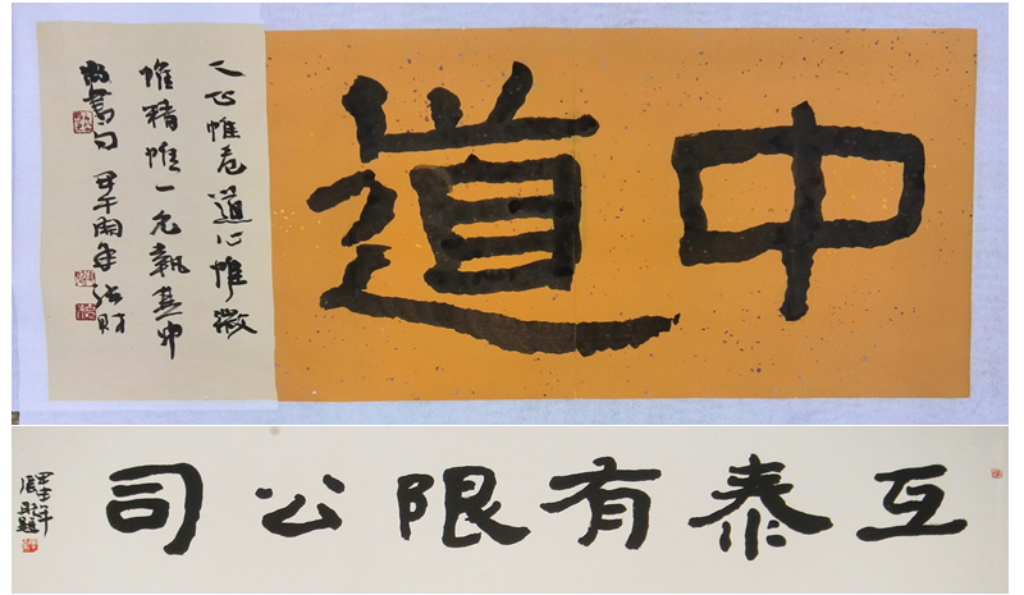 中道
人心惟危道心惟微
惟精惟一允執其中
尚書句 甲午開年 張財
互泰有限公司